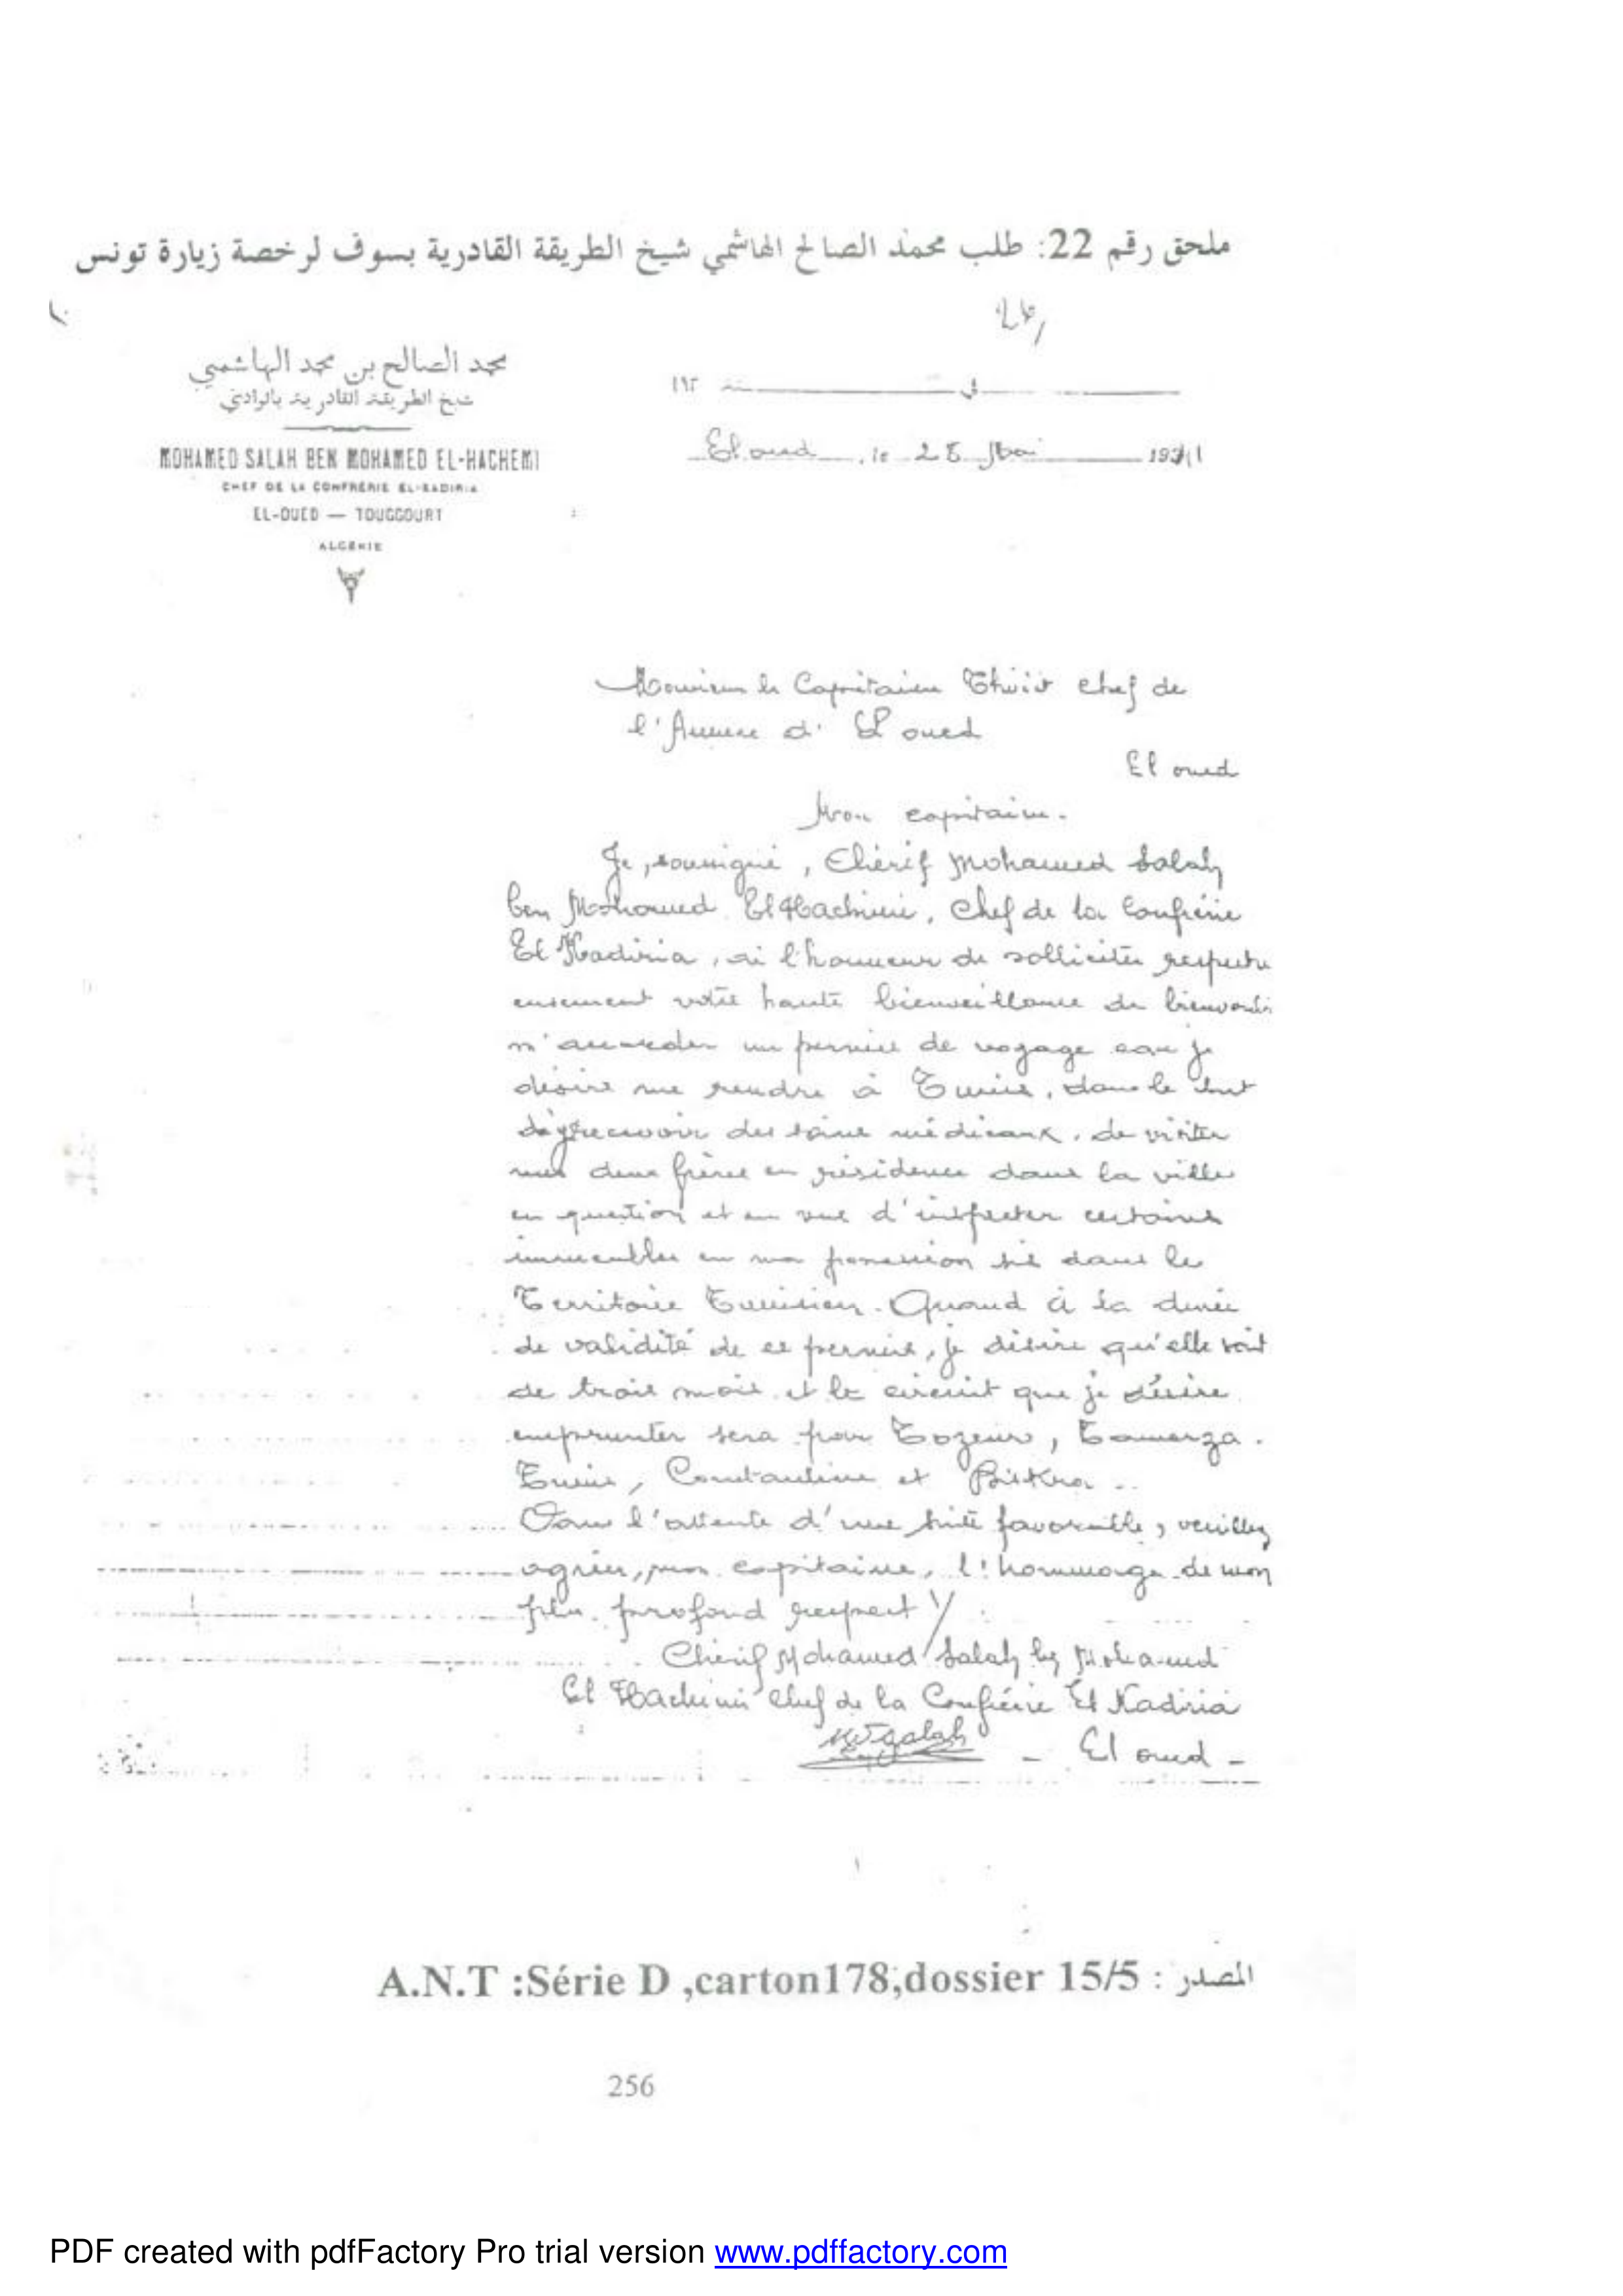 ملحق رقم 22: طلب محمد الصالح الهاشمي شيخ الطريقة القادرية بسوف لرخصة زيارة تونس
محمد الصالح بن محمد الهاشمي
شيخ الطريقة القادرية بالوادي
MOHAMED SALAH BEN MOHAMED EL-HACHEMI
CHEF DE LA CONFRÉRIE EL-KADIRIA
EL-OUED — TOUGGOURT
ALGÉRIE
في سنة ١٩٢
El oued, le 25 Mai 1941
Monsieur le Capitaine chef de
l'Annexe d'El oued
El oued
Mon capitaine.
Je, soussigné, Chérif Mohamed Salah
ben Mohamed El Hachimi, Chef de la Confrérie
El Kadiria, ai l'honneur de solliciter respectu
eusement votre haute bienveillance de bienvouloir
m'accorder un permis de voyage car je
désire me rendre à Tunis, dans le but
recevoir des soins médicaux, de visiter
mes deux frères en résidence dans la ville
en question et en vue d'inspecter certains
immeubles en ma possession sis dans le
Territoire Tunisien. Quand à la durée
de validité de ce permis, je désire qu'elle soit
de trois mois et le circuit que je désire
emprunter sera par Tozeur, Tamerza.
Tunis, Constantine et Biskra ..
Dans l'attente d'une suite favorable, veuillez
agréer, mon capitaine, l'hommage de mon
plus profond respect ./
Chérif Mohamed Salah ben Mohamed
El Hachimi Chef de la Confrérie El Kadiria
- El oued -
A.N.T :Série D ,carton178;dossier 15/5 : المصدر
256
PDF created with pdfFactory Pro trial version www.pdffactory.com